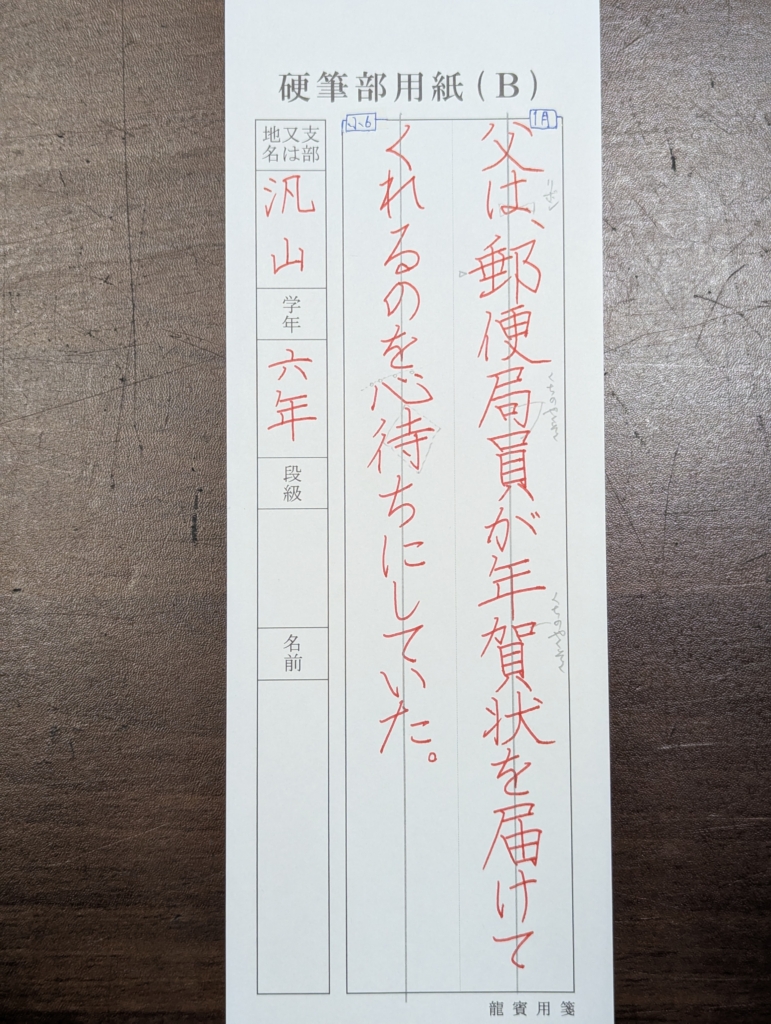 硬筆部用紙(B)
1月
父は、郵便局員が年賀状を届けて
リボン
くちのやくそく
くちのやくそく
小6
くれるのを心待ちにしていた。
支部
又は
地名
汎山
学年
六年
段級
名前
龍賓用箋